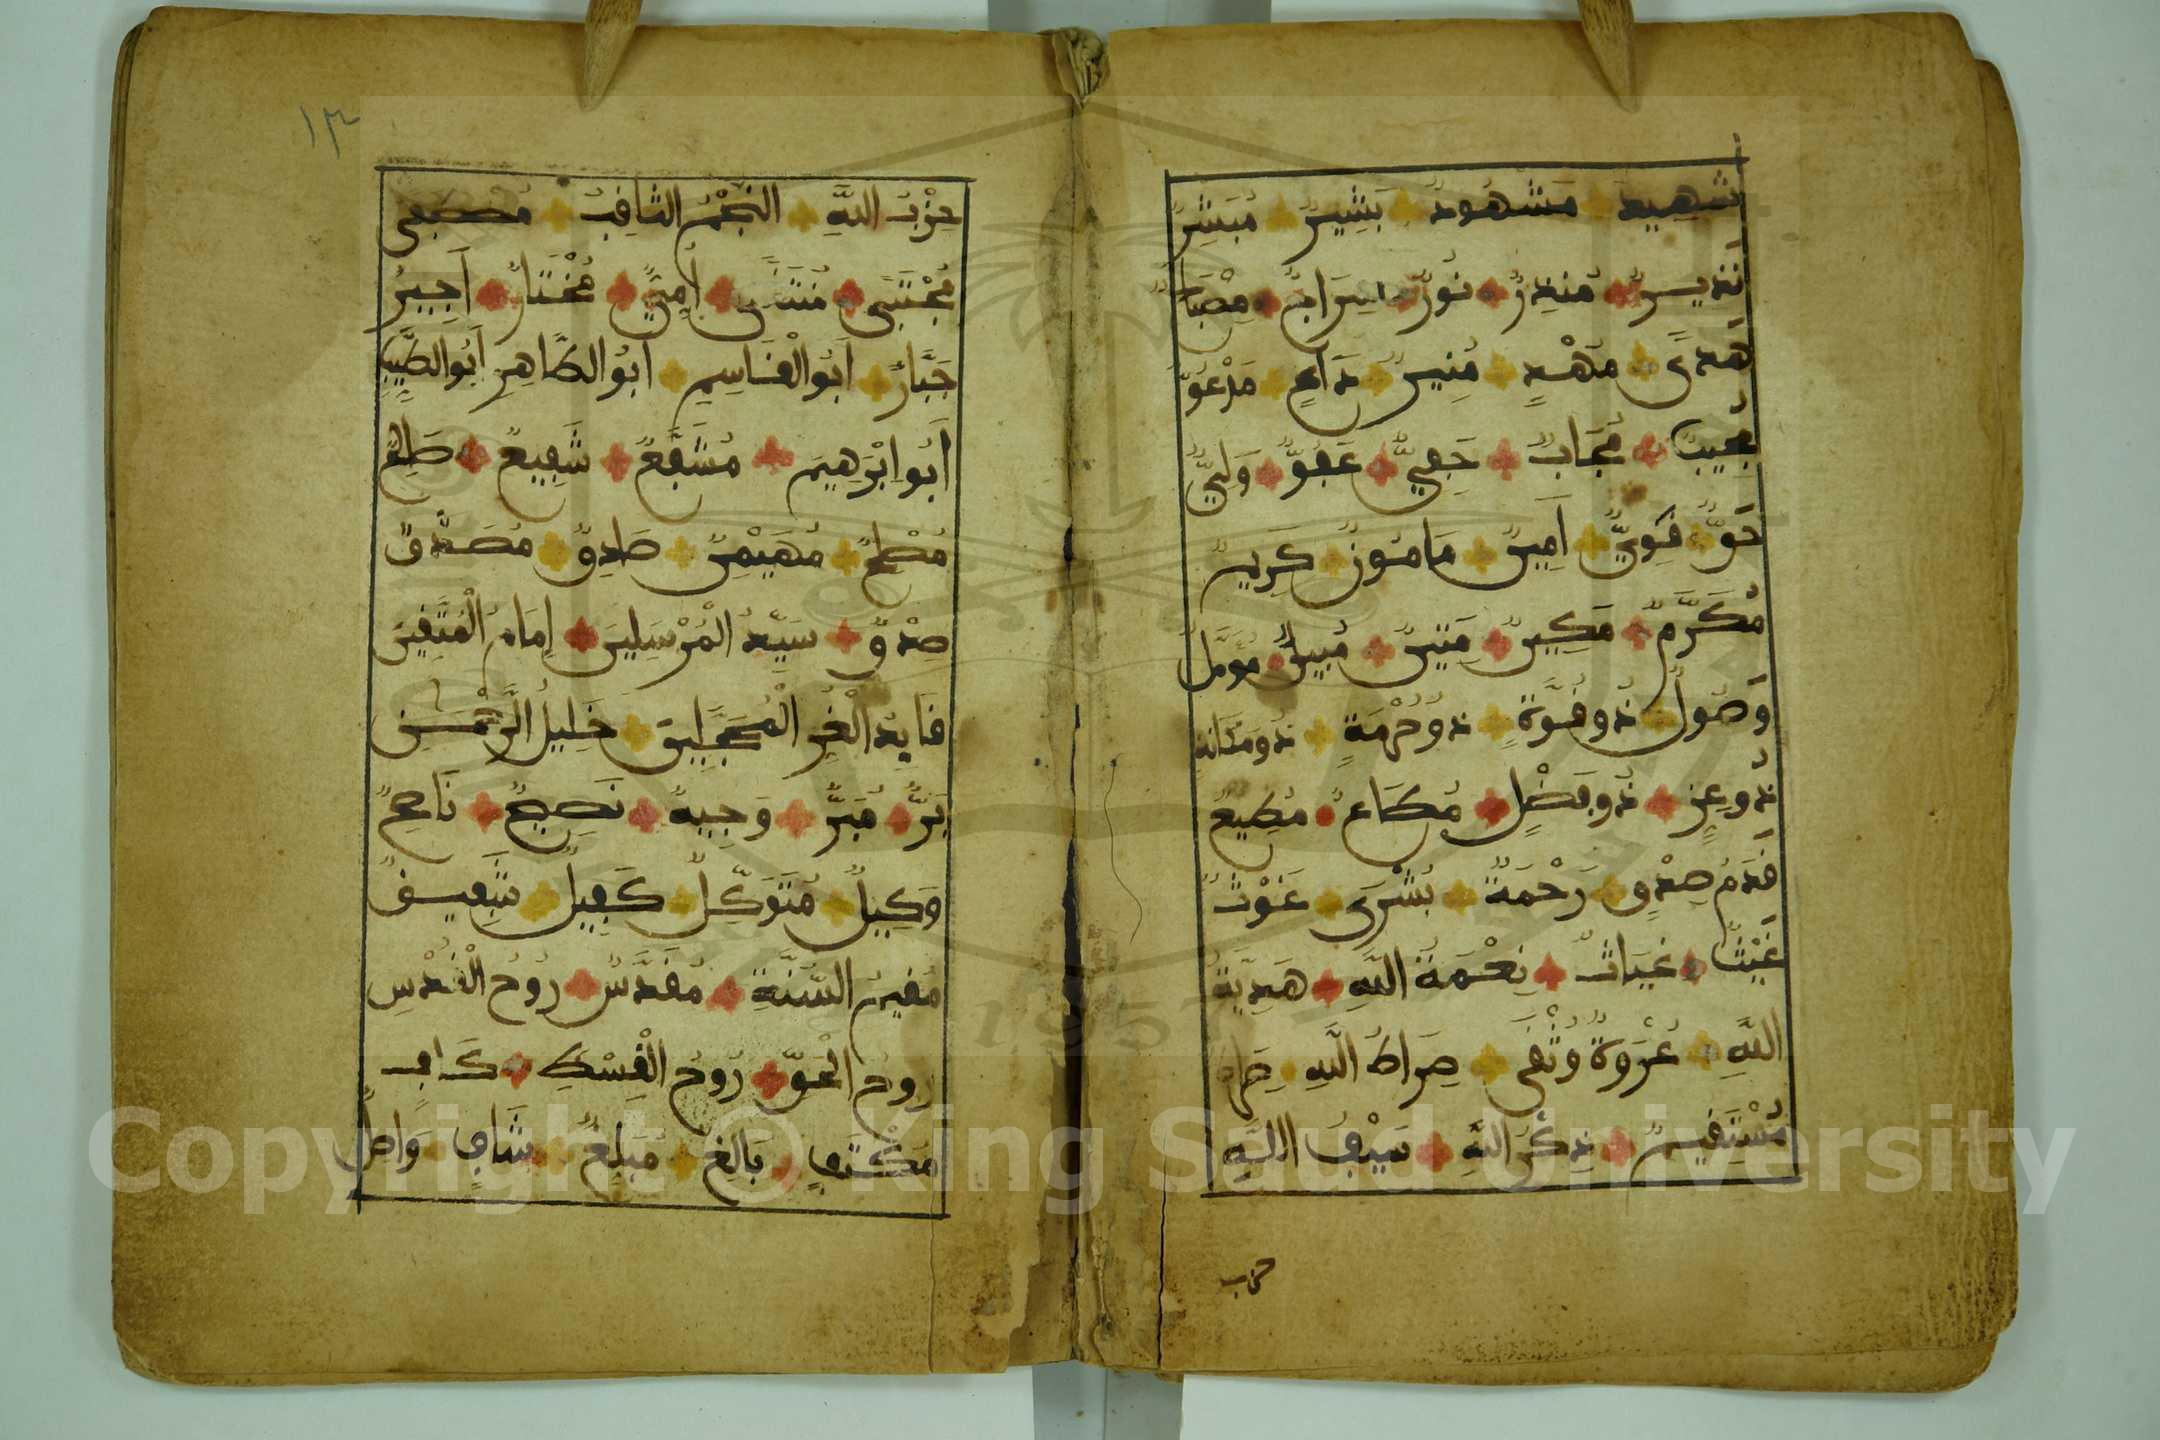 شَهِيدٌ مَشْهُودٌ بَشِيرٌ مُبَشِّرٌ
نَذِيرٌ مُنذِرٌ نُورٌ سِرَاجٌ مِصْبَاحٌ
هُدًى مُهْدٍ مُنِيرٌ دَاعٍ مَدْعُوٌّ
مُجِيبٌ مُجَابٌ حَفِيٌّ عَفُوٌّ وَلِيٌّ
حَقٌّ قَوِيٌّ أَمِينٌ مَامُونٌ كَرِيمٌ
مُكَرَّمٌ مَكِينٌ مَتِينٌ مُبِينٌ مُوَمَّلٌ
وَصُولٌ ذُو قُوَّةٍ ذُو حُرْمَةٍ ذُو مَكَانَةٍ
ذُو عِزٍّ ذُو فَضْلٍ مُطَاعٌ مُطِيعٌ
قَدَمُ صِدْقٍ رَحْمَةٌ بُشْرَى غَوْثٌ
غَيْثٌ غِيَاثٌ نِعْمَةُ اللَّهِ هَدِيَّةُ
اللَّهِ عُرْوَةٌ وُثْقَى صِرَاطُ اللَّهِ صِرَاطٌ
مُسْتَقِيمٌ ذِكْرُ اللَّهِ سَيْفُ اللَّهِ
حزب
١٣
حِزْبُ اللَّهِ النَّجْمُ الثَّاقِبُ مُصْطَفَى
مُجْتَبَى مُنتَقَى أُمِّيٌّ مُخْتَارٌ أَجِيرٌ
جَبَّارٌ أَبُو الْقَاسِمِ أَبُو الطَّاهِرِ أَبُو الطَّيِّبِ
أَبُو إِبْرَهِيمَ مُشَفَّعٌ شَفِيعٌ صَالِحٌ
مُصْلِحٌ مُهَيْمِنٌ صَادِقٌ مُصَدَّقٌ
صِدْقٌ سَيِّدُ الْمُرْسَلِينَ إِمَامُ الْمُتَّقِينَ
قَايِدُ الْغُرِّ الْمُحَجَّلِينَ خَلِيلُ الرَّحْمَنِ
بَرٌّ مُبَرٌّ وَجِيهٌ نَصِيحٌ نَاصِحٌ
وَكِيلٌ مُتَوَكِّلٌ كَفِيلٌ شَفِيقٌ
مُقِيمُ السُّنَّةِ مُقَدَّسٌ رُوحُ الْقُدُسِ
رُوحُ الْحَقِّ رُوحُ الْقِسْطِ كَافٍ
مُكْتَفٍ بَالِغٌ مُبَلِّغٌ شَافٍ وَاصِلٌ
Copyright © King Saud University
1957